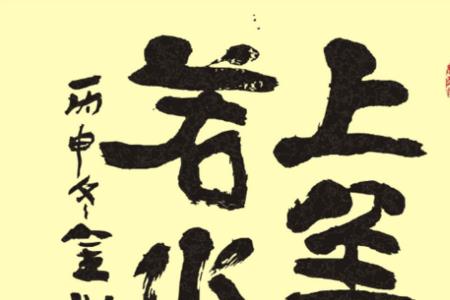 上善
若水
丙申冬金